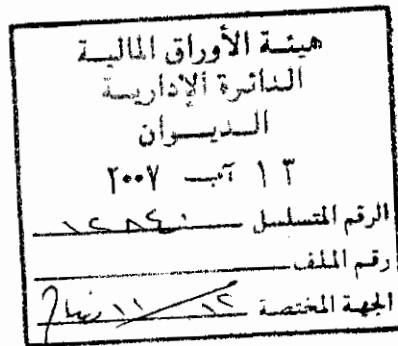 هيئة الأوراق المالية
الدائرة الإدارية
الديوان
١٣ آب ٢٠٠٧
الرقم المتسلسل
رقم الملف
الجهة المختصة